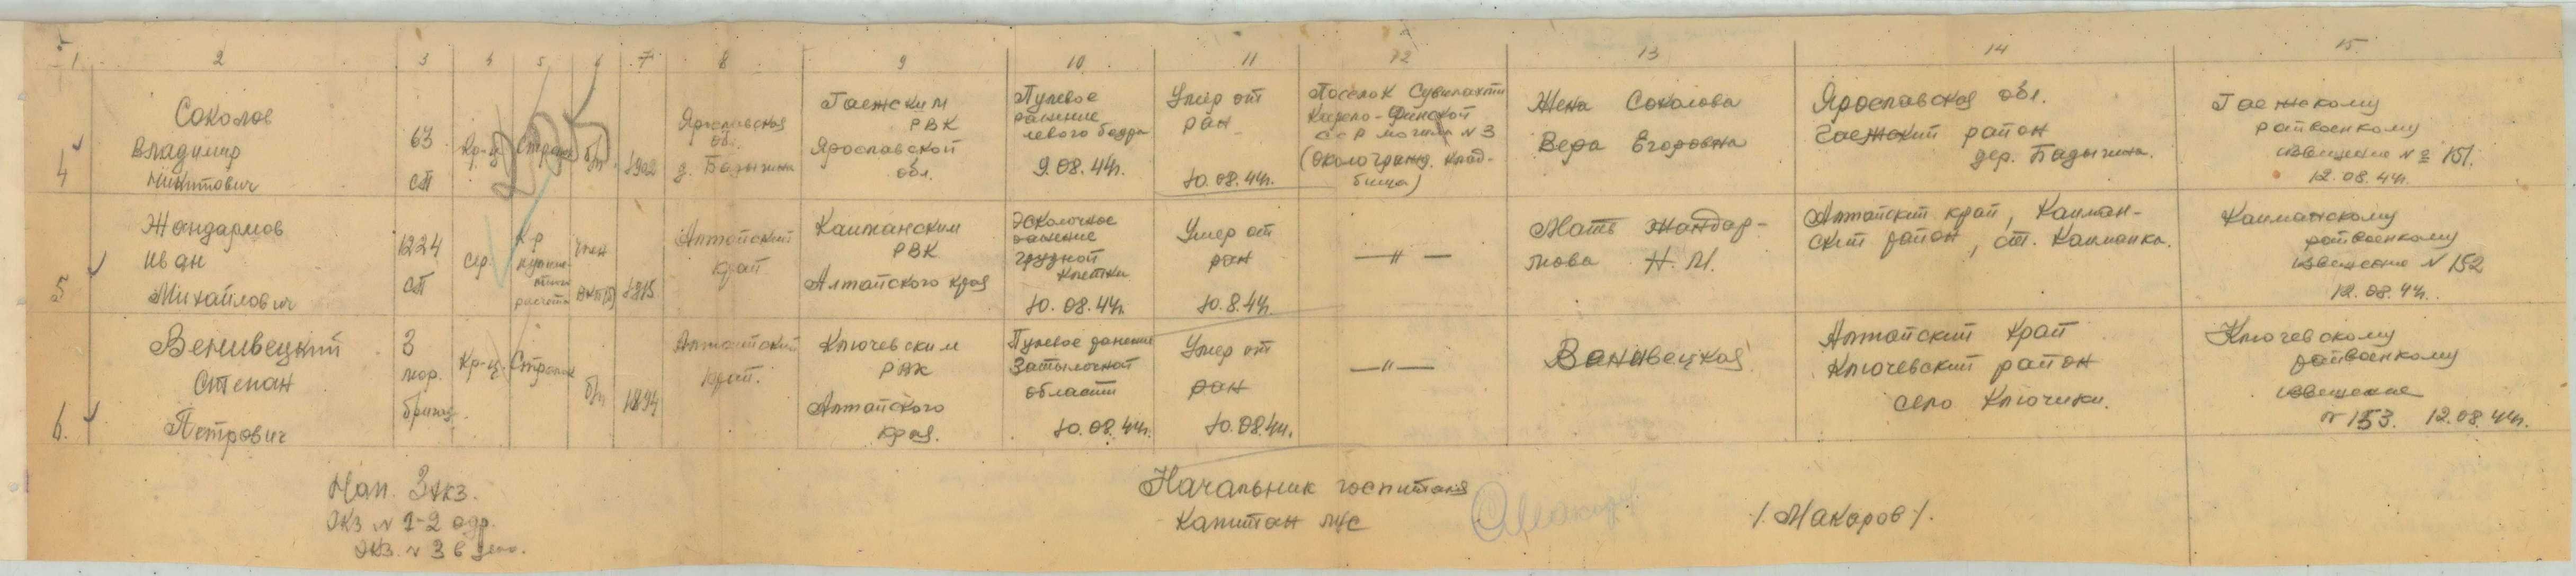 1 2 3 4 5 6 7 8 9 10 11 12 13 14 15
4
Соколов
Владимир
Никитович
63
сп
Кр-ц
б/п
1902
Ярославская
обл.
д. Бадыгина
Гаежским
РВК
Ярославской
обл.
Пулевое
ранение
левого бедра
9.08.44г.
Умер от
ран
10.08.44г.
Поселок Сувилахти
Карело-Финской
ССР могила N 3
(около гражд. клад-
бища)
Жена Соколова
Вера Егоровна
Ярославская обл.
Гаежский район
дер. Бадыгина.
Гаежскому
райвоенкому
извещение № 151.
12.08.44г.
5
Жандармов
Иван
Михайлович
1224
сп
сер.
К-р
пулем-
расчета
член
ВКП(б)
1915
Алтайский
край
Калманским
РВК
Алтайского края
Осколочное
ранение
грудной
клетки
10.08.44г.
Умер от
ран
10.8.44г.
—"—
Мать Жандар-
мова Н. М.
Алтайский край, Калман-
ский район, ст. Калманка.
Калманскому
райвоенкому
извещение N 152
12.08.44г.
6.
Венивецкий
Степан
Петрович
3
мор.
бриг.
Кр-ц.
Стрелок
б/п
1894
Алтайский
край.
Ключевским
РВК
Алтайского
края.
Пулевое ранение
Затылочной
области
10.08.44г.
Умер от
ран
10.08.44г.
—"—
Венивецкая
Алтайский край
Ключевский район
село Ключики.
Ключевскому
райвоенкому
извещение
N 153. 12.08.44г.
Нап. 3 экз.
Экз N 1-2 адр.
Экз. N 3 в дело.
Начальник госпиталя
Капитан м/с
/. Макаров /.